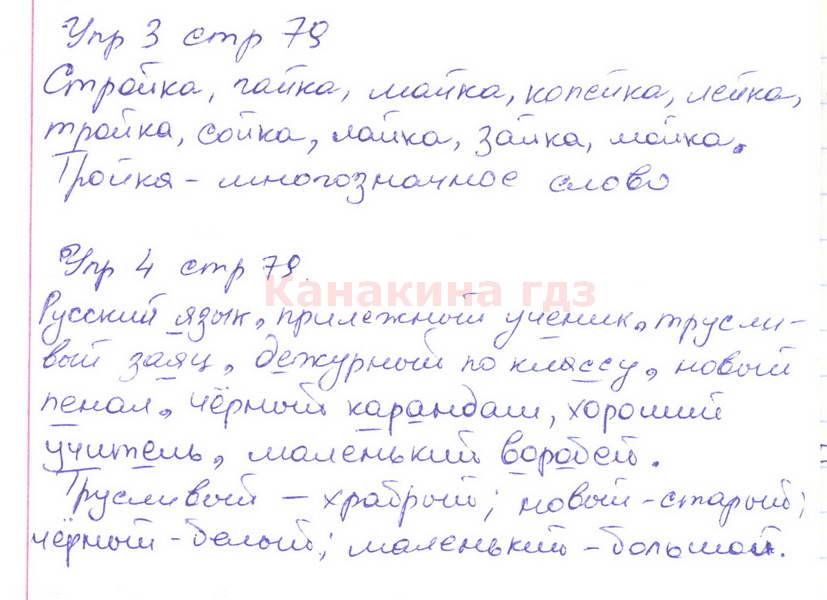 Упр 3 стр 79
Стройка, гайка, майка, копейка, лейка,
тройка, сойка, лайка, зайка, мойка.
Тройка - многозначное слово
Упр 4 стр 79.
Канакина гдз
Русский язык, прилежный ученик, трусли-
вый заяц, дежурный по классу, новый
пенал, чёрный карандаш, хороший
учитель, маленький воробей.
Трусливый — храбрый; новый - старый;
чёрный - белый; маленький - большой.